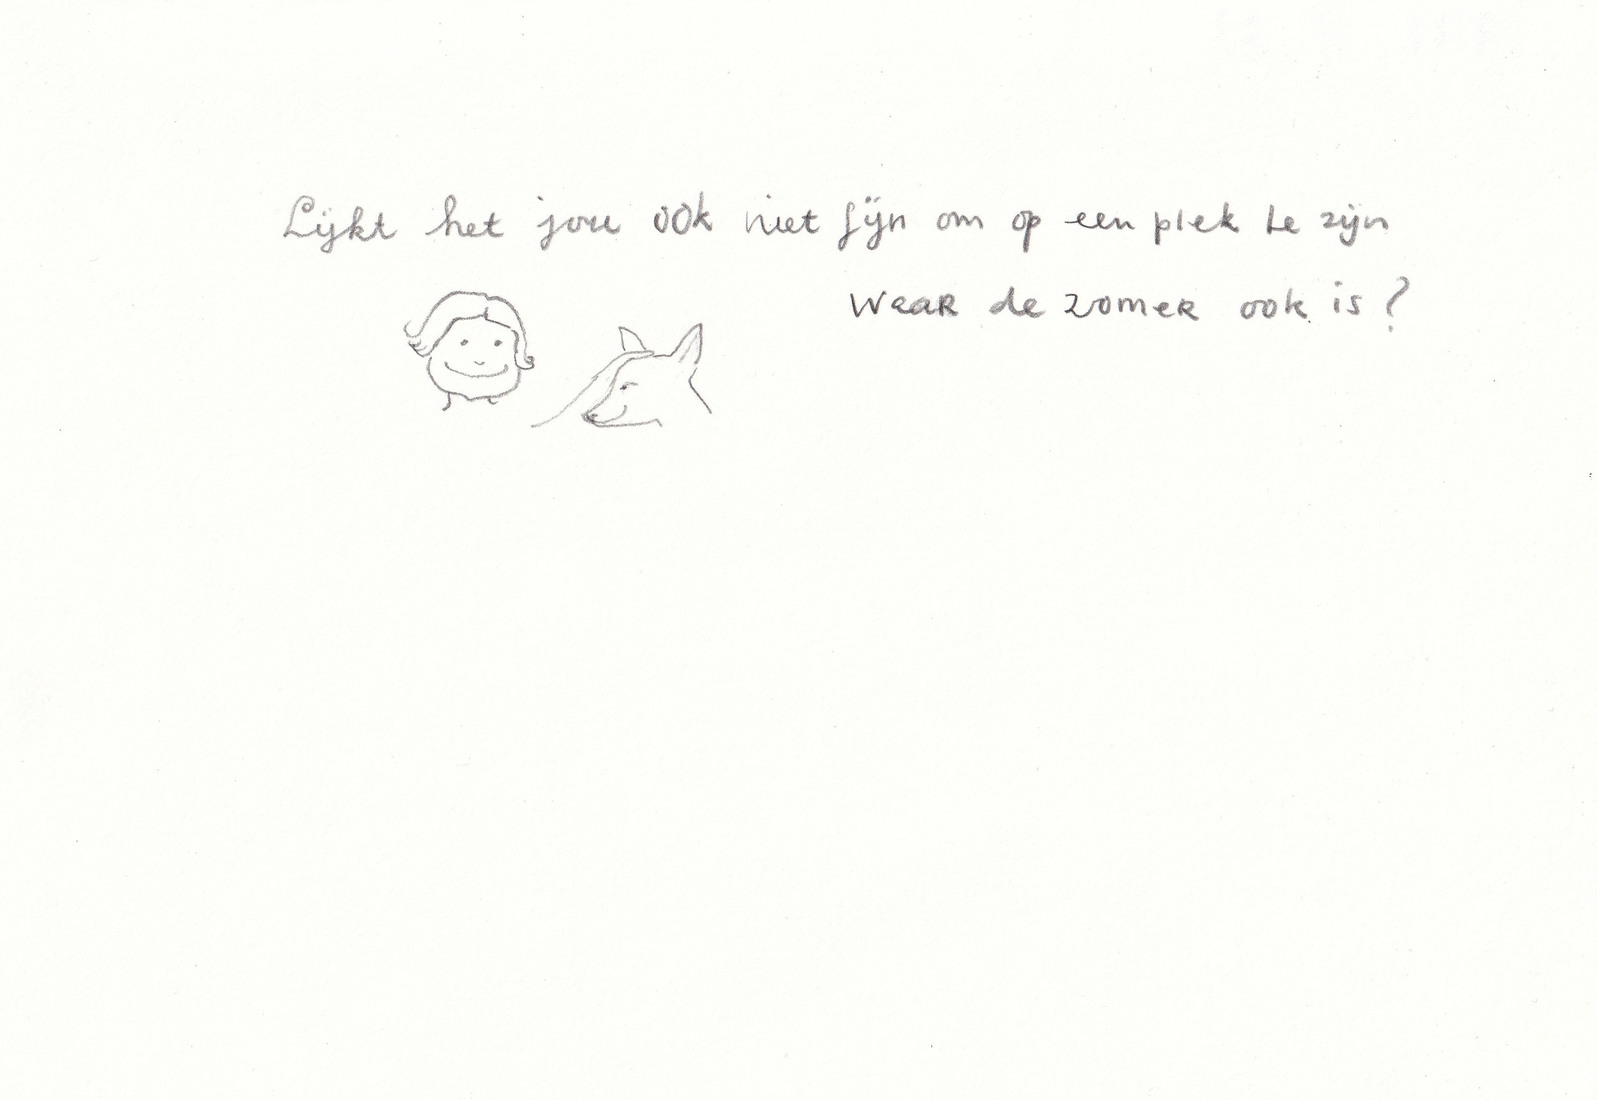 Lijkt het jou ook niet fijn om op een plek te zijn
waar de zomer ook is?